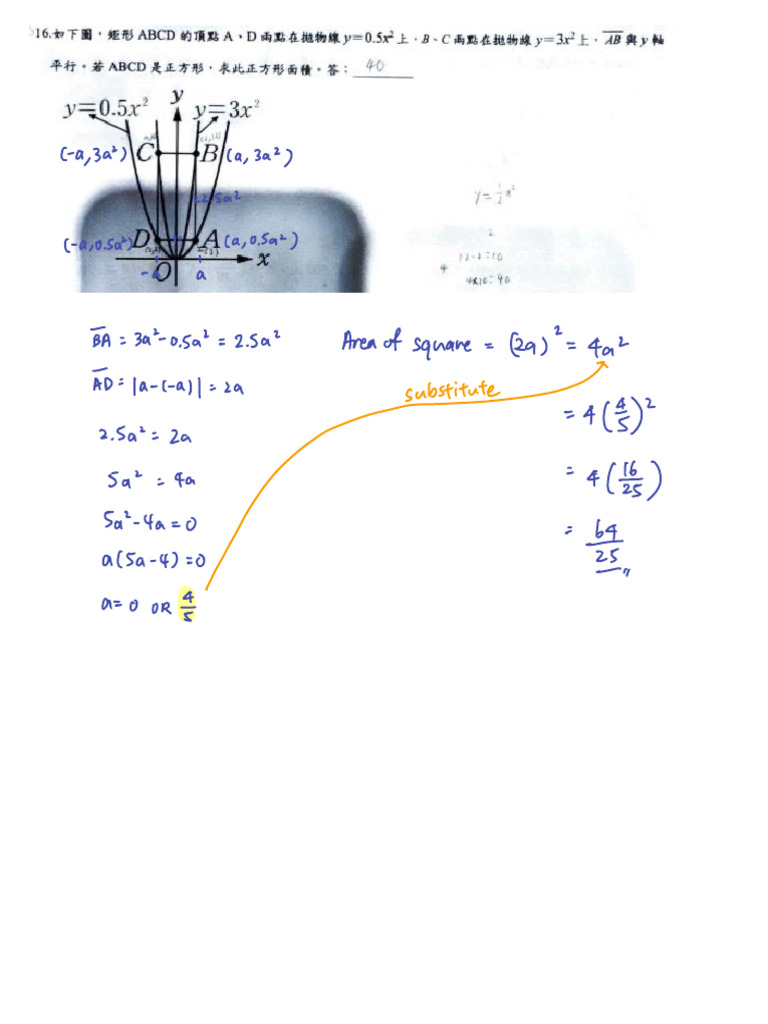 16.如下圖，矩形 ABCD 的頂點 A、D 兩點在拋物線 y=0.5x² 上，B、C 兩點在拋物線 y=3x² 上，AB 與 y 軸
平行。若 ABCD 是正方形，求此正方形面積。答： 40
y=0.5x² y y=3x²
(-a, 3a²) C B (a, 3a²)
2.5a²
y=1/2x²
(-a, 0.5a²) D A (a, 0.5a²)
2
-a O a x
4
4x10=40
BA = 3a²-0.5a² = 2.5a²
AD = |a-(-a)| = 2a
2.5a² = 2a
5a² = 4a
5a²-4a=0
a(5a-4)=0
a=0 OR 4/5
Area of square = (2a)² = 4a²
substitute
= 4(4/5)²
= 4(16/25)
= 64/25